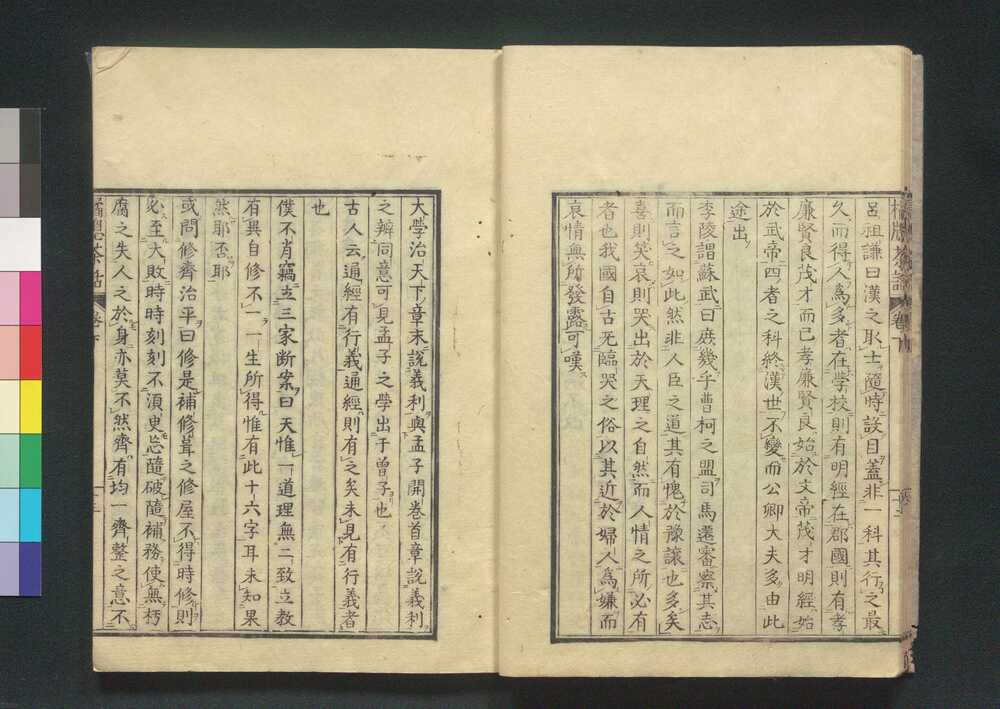 呂祖謙曰漢之取士隨時設目蓋非一科其行之最
久而得人為多者在学校則有明經在郡國則有孝
廉賢良茂才而已孝廉賢良始於文帝茂才明經始
於武帝四者之科終漢世不變而公卿大夫多由此
途出
李陵謂蘇武曰庶幾乎曹柯之盟司馬遷審察其志
而言之如此然非人臣之道其有愧於豫讓也多矣
喜則笑哀則哭出於天理之自然而人情之所必有
者也我國自古旡臨哭之俗以其近於婦人為嫌而
哀情無所發露可嘆
大學治天下章末說義利與孟子開卷首章說義利
之辨同意可見孟子之學出于曽子也
古人云通經有行義通經則有之矣未見有行義者
也
僕不肖竊立三家断案曰天惟一道理無二致立教
有異自修不一一生所得惟有此十六字耳未知果
然耶否耶
或問修齊治平曰修是補修葺之修屋不得時修則
必至大敗時時刻刻不須臾忘隨破隨補務使無朽
腐之失人之於身亦莫不然齊有均一齊整之意不
茶話
卷下